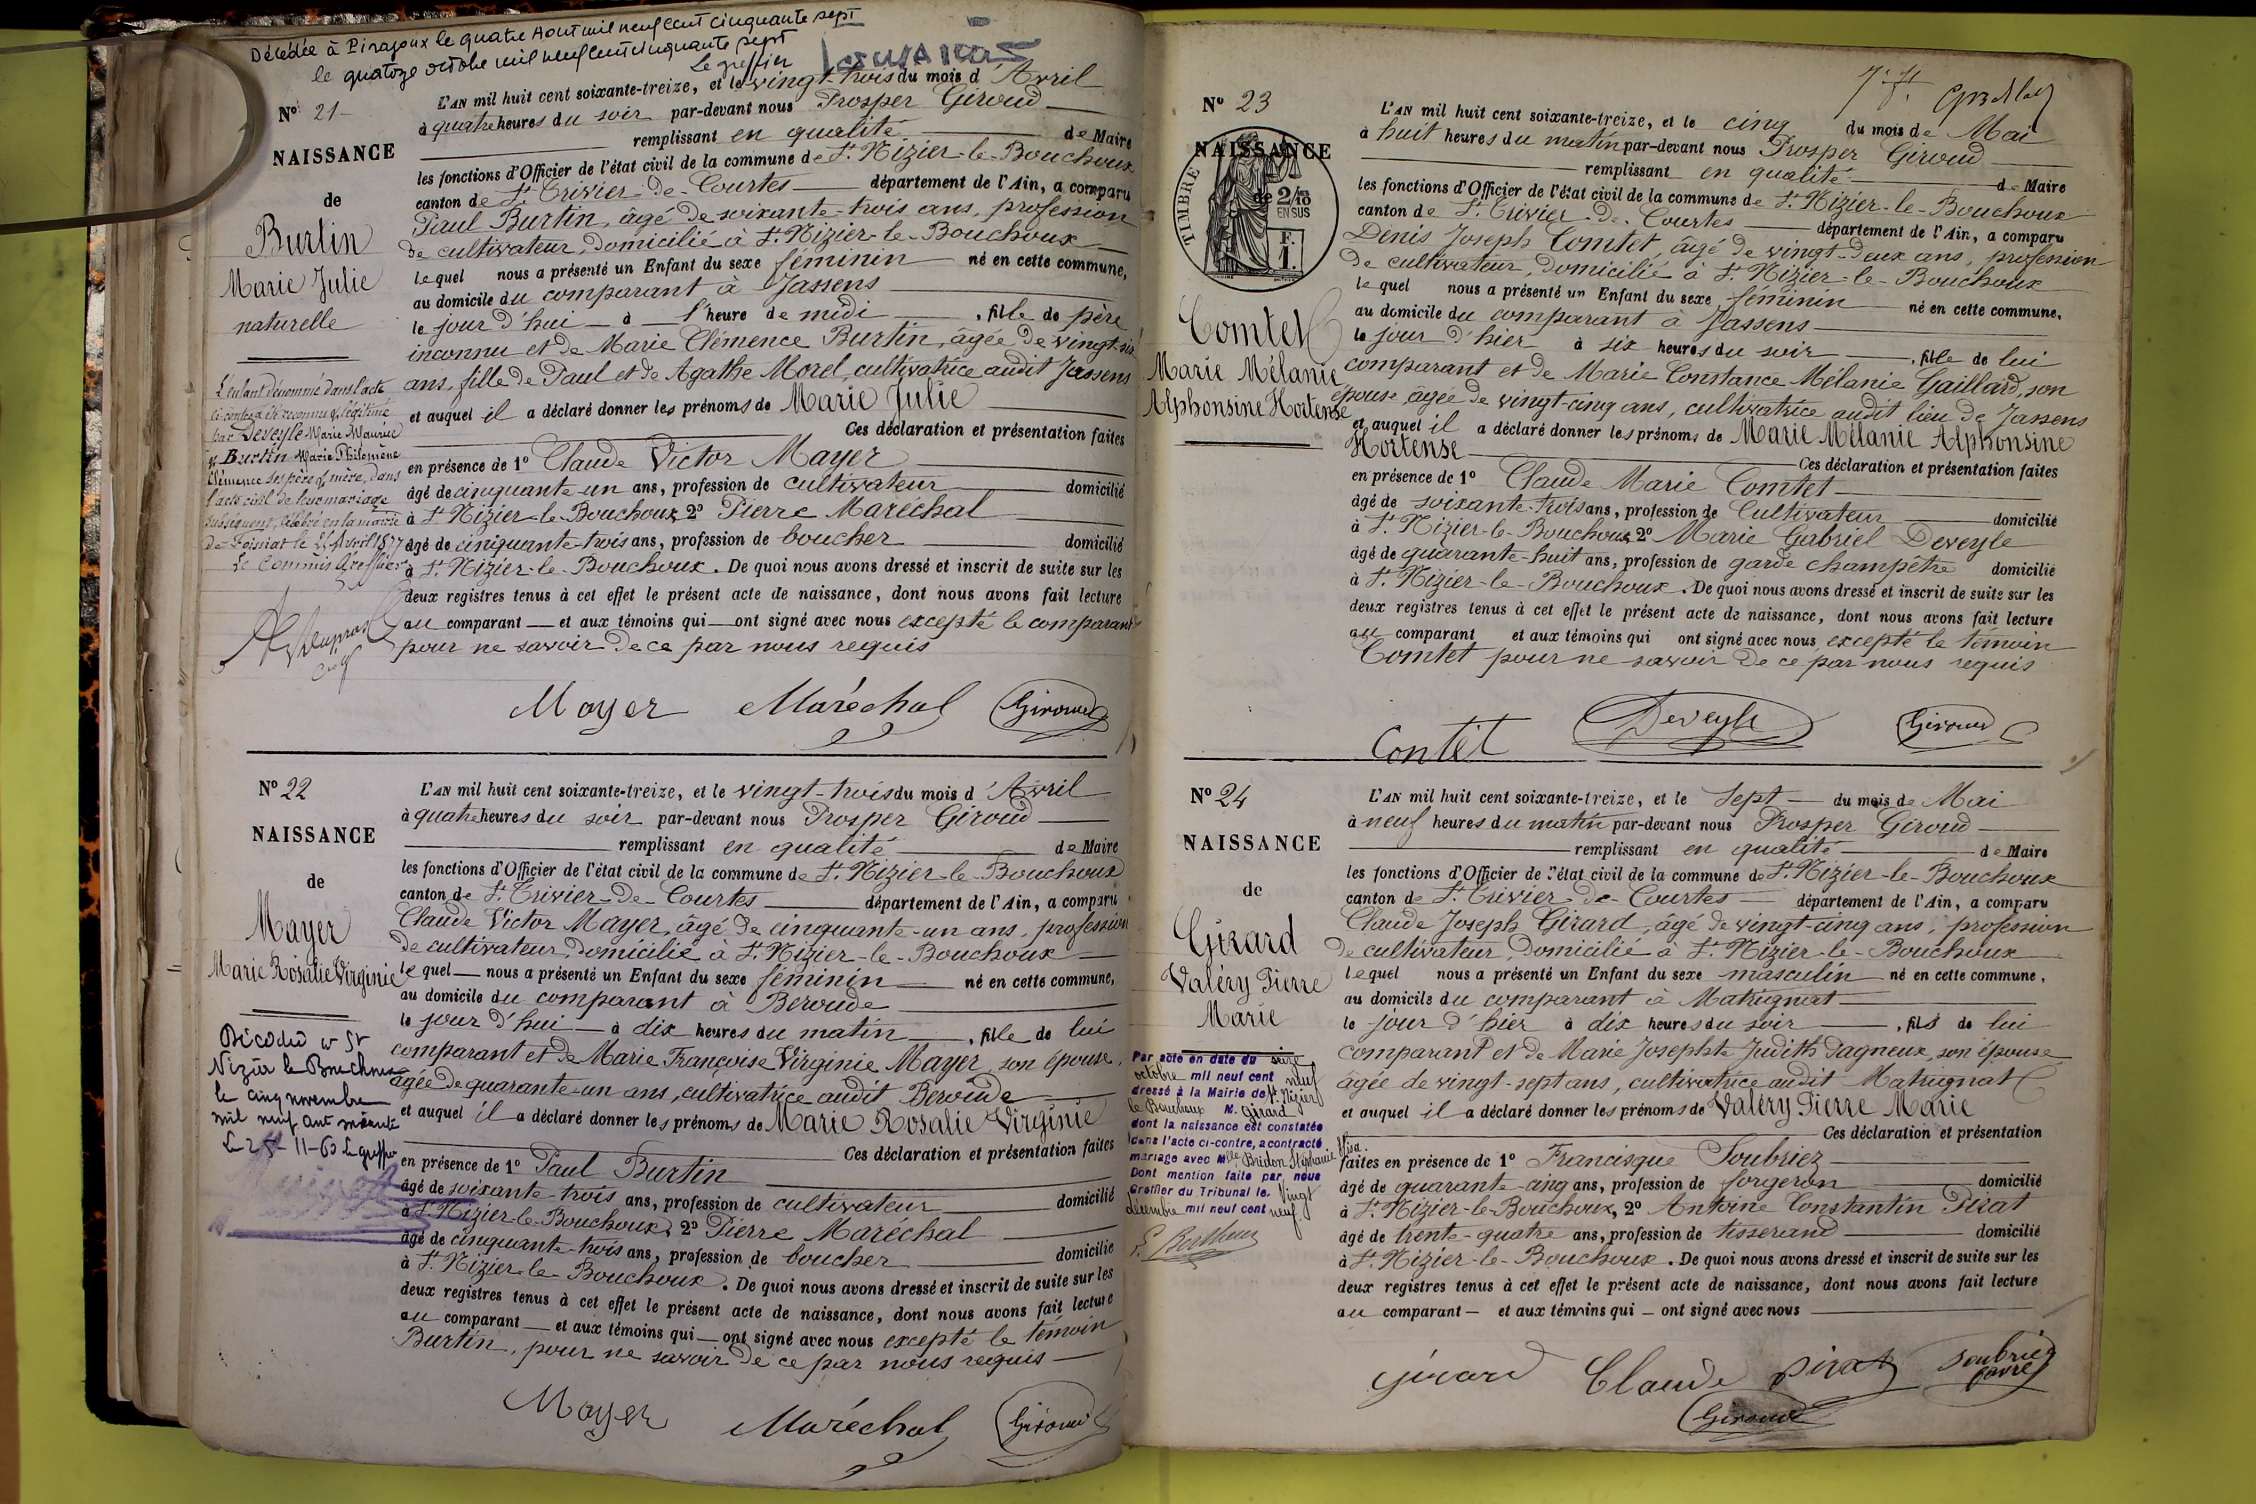 Décédée à Pirajoux le quatre Aout mil neuf cent cinquante sept
le quatorze octobre mil neuf cent cinquante sept
Le greffier
N° 21
NAISSANCE
de
Burtin
Marie Julie
naturelle
L'enfant dénommé dans l'acte
ci-contre a été reconnu & légitimé
par Deveyle Marie Maurice
& Burtin Marie Philomène
Clémence ses père & mère, dans
l'acte civil de leur mariage
subséquent, célébré en la mairie
de Foissiat le Avril 1877
Le Commis Greffier
L'AN mil huit cent soixante-treize, et le vingt-trois du mois d'Avril
à quatre heures du soir par-devant nous Prosper Giroud
remplissant en qualité de Maire
les fonctions d'Officier de l'état civil de la commune de St Nizier-le-Bouchoux
canton de St Trivier-de-Courtes département de l'Ain, a comparu
Paul Burtin, âgé de soixante-trois ans, profession
de cultivateur, domicilié à St Nizier-le-Bouchoux
lequel nous a présenté un Enfant du sexe féminin né en cette commune,
au domicile du comparant à Jassens
le jour d'hui à l'heure de midi, fille de père
inconnu et de Marie Clémence Burtin, âgée de vingt-six
ans, fille de Paul et de Agathe Morel, cultivatrice audit Jassens
et auquel il a déclaré donner les prénoms de Marie Julie
Ces déclaration et présentation faites
en présence de 1° Claude Victor Mayer
âgé de cinquante-un ans, profession de cultivateur domicilié
à St Nizier-le-Bouchoux, 2° Pierre Maréchal
âgé de cinquante-trois ans, profession de boucher domicilié
à St Nizier-le-Bouchoux. De quoi nous avons dressé et inscrit de suite sur les
deux registres tenus à cet effet le présent acte de naissance, dont nous avons fait lecture
au comparant et aux témoins qui ont signé avec nous excepté le comparant
pour ne savoir de ce par nous requis
Mayer Maréchal Giroud
N° 22
NAISSANCE
de
Mayer
Marie Rosalie Virginie
Décédée à St
Nizier le Bouchoux
le cinq novembre
mil neuf cent soixante
Le 25-11-60 Le greffier
L'AN mil huit cent soixante-treize, et le vingt-trois du mois d'Avril
à quatre heures du soir par-devant nous Prosper Giroud
remplissant en qualité de Maire
les fonctions d'Officier de l'état civil de la commune de St Nizier-le-Bouchoux
canton de St Trivier-de-Courtes département de l'Ain, a comparu
Claude Victor Mayer, âgé de cinquante-un ans, profession
de cultivateur, domicilié à St Nizier-le-Bouchoux
lequel nous a présenté un Enfant du sexe féminin né en cette commune,
au domicile du comparant à Beroude
le jour d'hui à dix heures du matin, fille de lui
comparant et de Marie Françoise Virginie Mayer, son épouse,
âgée de quarante-un ans, cultivatrice audit Beroude
et auquel il a déclaré donner les prénoms de Marie Rosalie Virginie
Ces déclaration et présentation faites
en présence de 1° Paul Burtin
âgé de soixante-trois ans, profession de cultivateur domicilié
à St Nizier-le-Bouchoux, 2° Pierre Maréchal
âgé de cinquante-trois ans, profession de boucher domicilié
à St Nizier-le-Bouchoux. De quoi nous avons dressé et inscrit de suite sur les
deux registres tenus à cet effet le présent acte de naissance, dont nous avons fait lecture
au comparant et aux témoins qui ont signé avec nous excepté le témoin
Burtin, pour ne savoir de ce par nous requis
Mayer Maréchal Giroud
N° 23
NAISSANCE
de
TIMBRE
2/10
EN SUS
F.
1.
Comtet
Marie Mélanie
Alphonsine Hortense
L'AN mil huit cent soixante-treize, et le cinq du mois de Mai
à huit heures du matin par-devant nous Prosper Giroud
remplissant en qualité de Maire
les fonctions d'Officier de l'état civil de la commune de St Nizier-le-Bouchoux
canton de St Trivier-de-Courtes département de l'Ain, a comparu
Denis Joseph Comtet, âgé de vingt-deux ans, profession
de cultivateur, domicilié à St Nizier-le-Bouchoux
lequel nous a présenté un Enfant du sexe féminin né en cette commune,
au domicile du comparant à Jassens
le jour d'hier à six heures du soir, fille de lui
comparant et de Marie Constance Mélanie Gaillard, son
épouse, âgée de vingt-cinq ans, cultivatrice audit lieu de Jassens
et auquel il a déclaré donner les prénoms de Marie Mélanie Alphonsine
Hortense
Ces déclaration et présentation faites
en présence de 1° Claude Marie Comtet
âgé de soixante-trois ans, profession de Cultivateur domicilié
à St Nizier-le-Bouchoux, 2° Marie Gabriel Deveyle
âgé de quarante-huit ans, profession de garde champêtre domicilié
à St Nizier-le-Bouchoux. De quoi nous avons dressé et inscrit de suite sur les
deux registres tenus à cet effet le présent acte de naissance, dont nous avons fait lecture
au comparant et aux témoins qui ont signé avec nous excepté le témoin
Comtet pour ne savoir de ce par nous requis
Contet Deveyle Giroud
N° 24
NAISSANCE
de
Girard
Valéry Pierre
Marie
Par acte en date du seize
octobre mil neuf cent neuf
dressé à la Mairie de St Nizier
le Bouchoux M. Girard
dont la naissance est constatée
dans l'acte ci-contre, a contracté
mariage avec Mlle Bridon Stéphanie
Dont mention faite par nous
Greffier du Tribunal le Vingt
décembre mil neuf cent neuf
L'AN mil huit cent soixante-treize, et le sept du mois de Mai
à neuf heures du matin par-devant nous Prosper Giroud
remplissant en qualité de Maire
les fonctions d'Officier de l'état civil de la commune de St Nizier-le-Bouchoux
canton de St Trivier-de-Courtes département de l'Ain, a comparu
Claude Joseph Girard, âgé de vingt-cinq ans, profession
de cultivateur, domicilié à St Nizier-le-Bouchoux
lequel nous a présenté un Enfant du sexe masculin né en cette commune,
au domicile du comparant à Matrignat
le jour d'hier à dix heures du soir, fils de lui
comparant et de Marie Josephte Judith Pagneux, son épouse
âgée de vingt-sept ans, cultivatrice audit Matrignat
et auquel il a déclaré donner les prénoms de Valéry Pierre Marie
Ces déclaration et présentation
faites en présence de 1° Francisque Soubriez
âgé de quarante-cinq ans, profession de forgeron domicilié
à St Nizier-le-Bouchoux, 2° Antoine Constantin Pirat
âgé de trente-quatre ans, profession de tisserand domicilié
à St Nizier-le-Bouchoux. De quoi nous avons dressé et inscrit de suite sur les
deux registres tenus à cet effet le présent acte de naissance, dont nous avons fait lecture
au comparant et aux témoins qui ont signé avec nous
Girard Claude Pirat Soubriez
Giroud